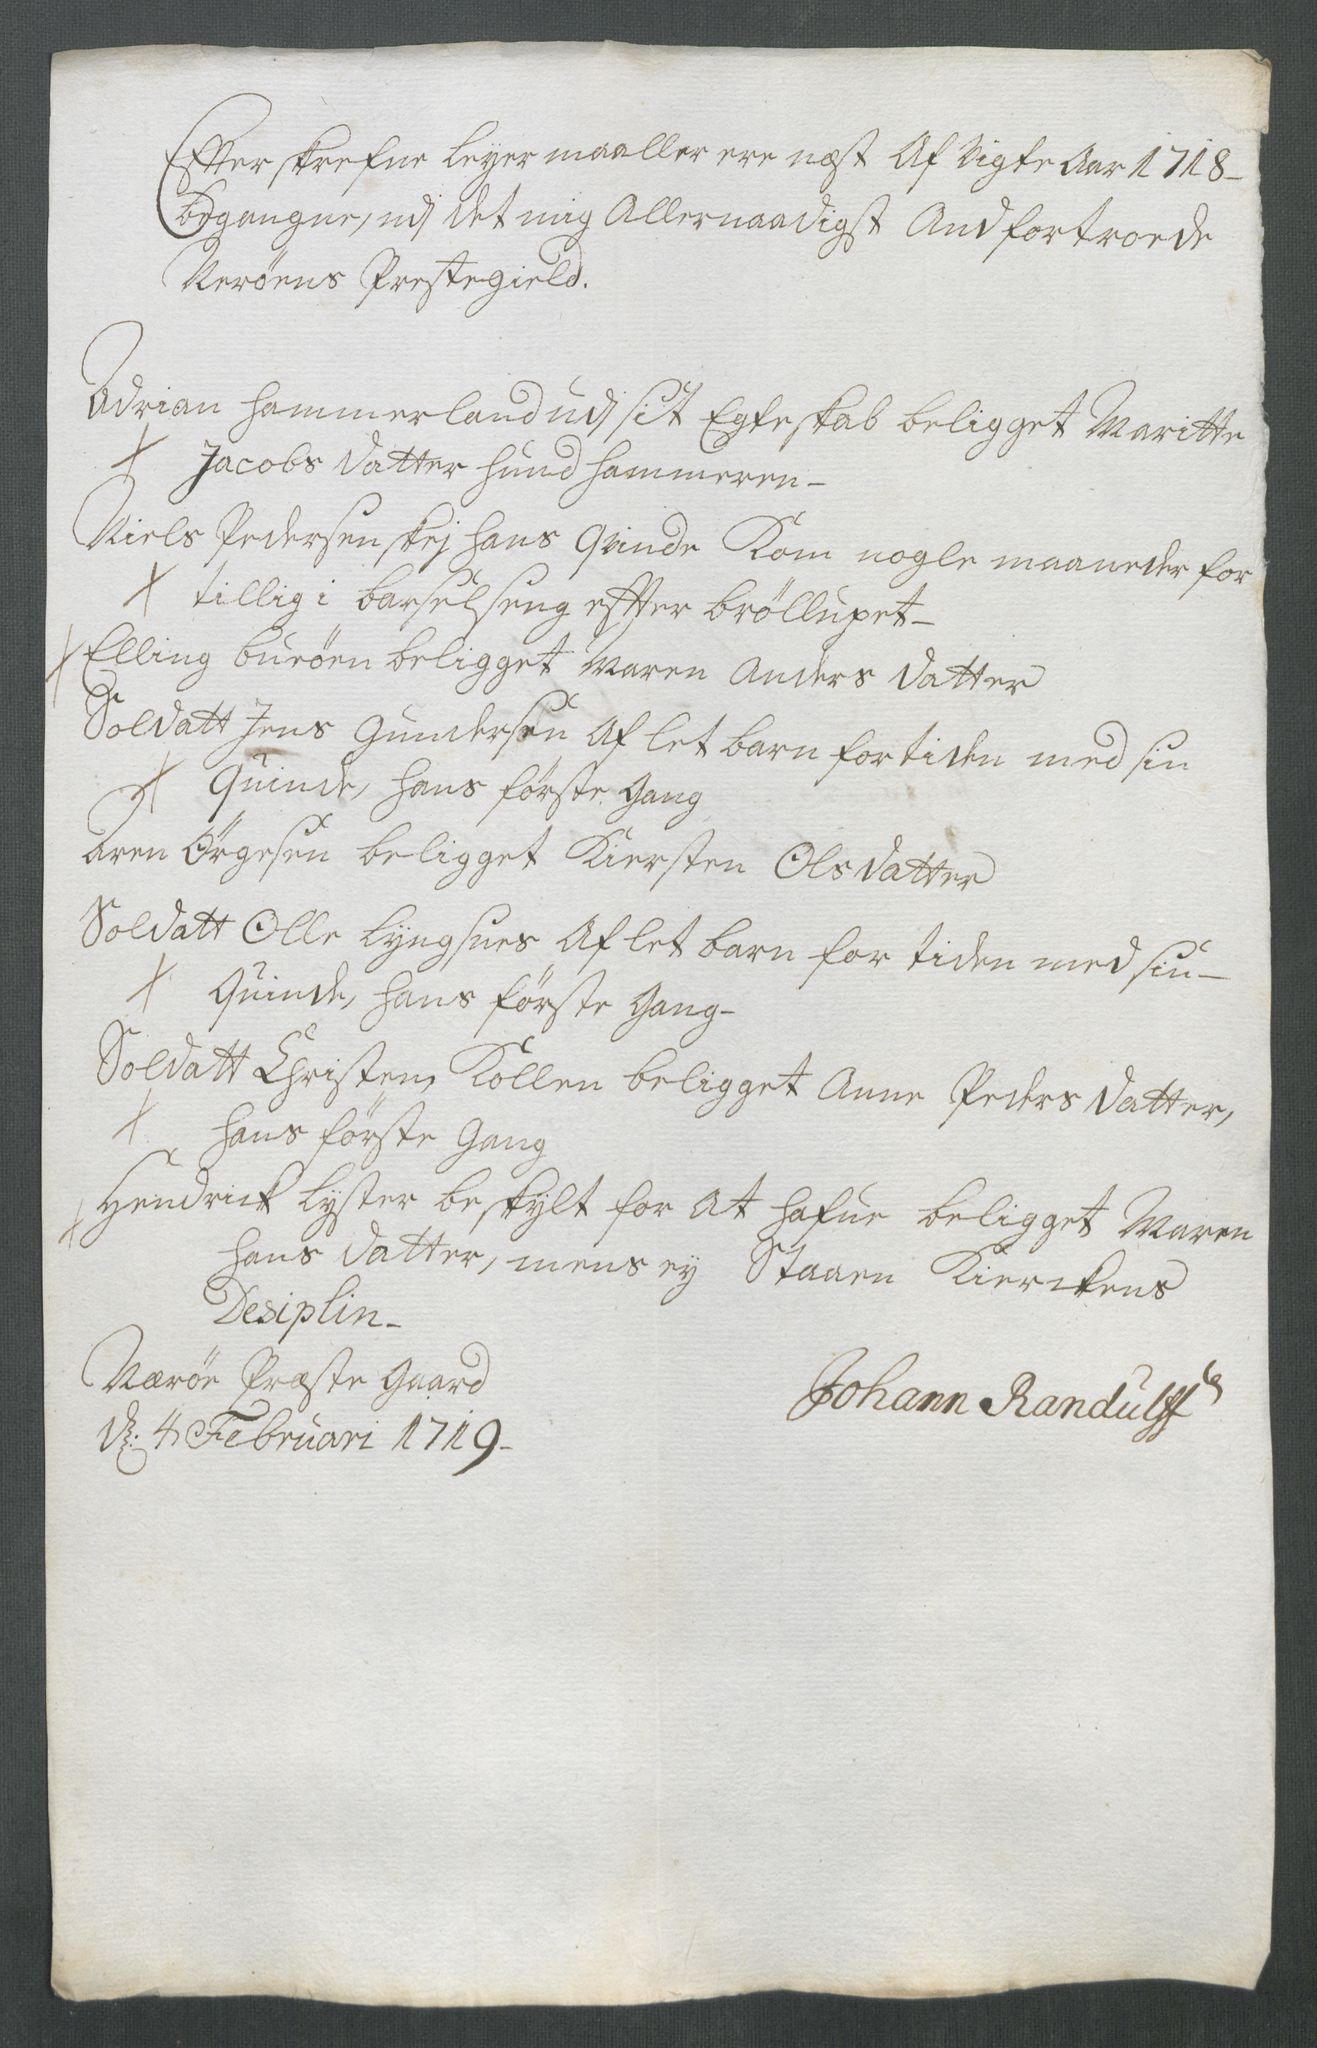 Effter skrefne leyermaaller ere næst Afvigte Aar 1718
begangne, udj det mig Allernaadigst Andfortroede
Nerøens Prestegield.
Adrian Hammerland udj sit Egteskab beligget Maritte
Jacobs datter Hundhammeren
Niels Pedersen skej hans Qvinde Kom nogle maaneder for
tillig i barselseng effter brøllupet
Elling burøen beligget Maren Anders datter
Soldatt Jens Gundersen Aflet barn for tiden med sin
Quinde, hans første Gang
Aren Ørgesen beligget Kiersten Olsdatter
Soldatt Olle Lyngsnes Aflet barn for tiden med sin
Quinde, hans første Gang
Soldatt Christen Kollen beligget Anne Peders datter,
hans første Gang
Hendrick Lyster beskylt for At hafue beligget Maren
Hans datter, mens ey Staaen Kierckens
Desiplin
Nærøe Præste Gaard
d: 4 Februari 1719
Johann Randulff